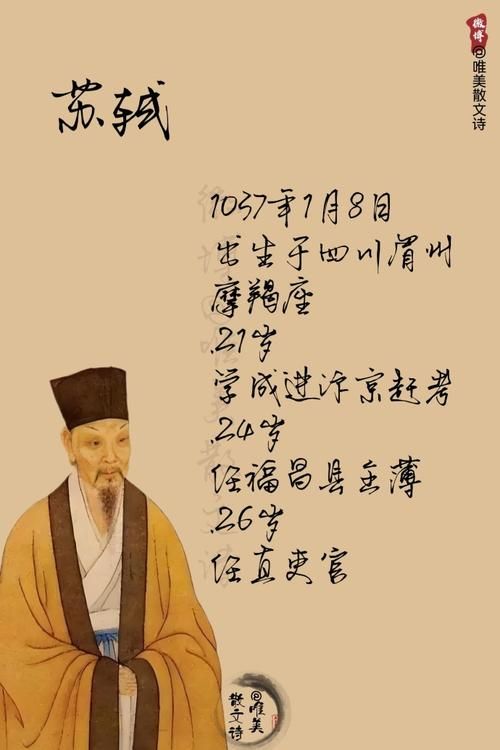 微博
@唯美散文诗
苏轼
1037年1月8日
出生于四川眉州
摩羯座
.21岁
学成进汴京赶考
.24岁
任福昌县主薄
.26岁
任直吏官
@唯美
散文诗